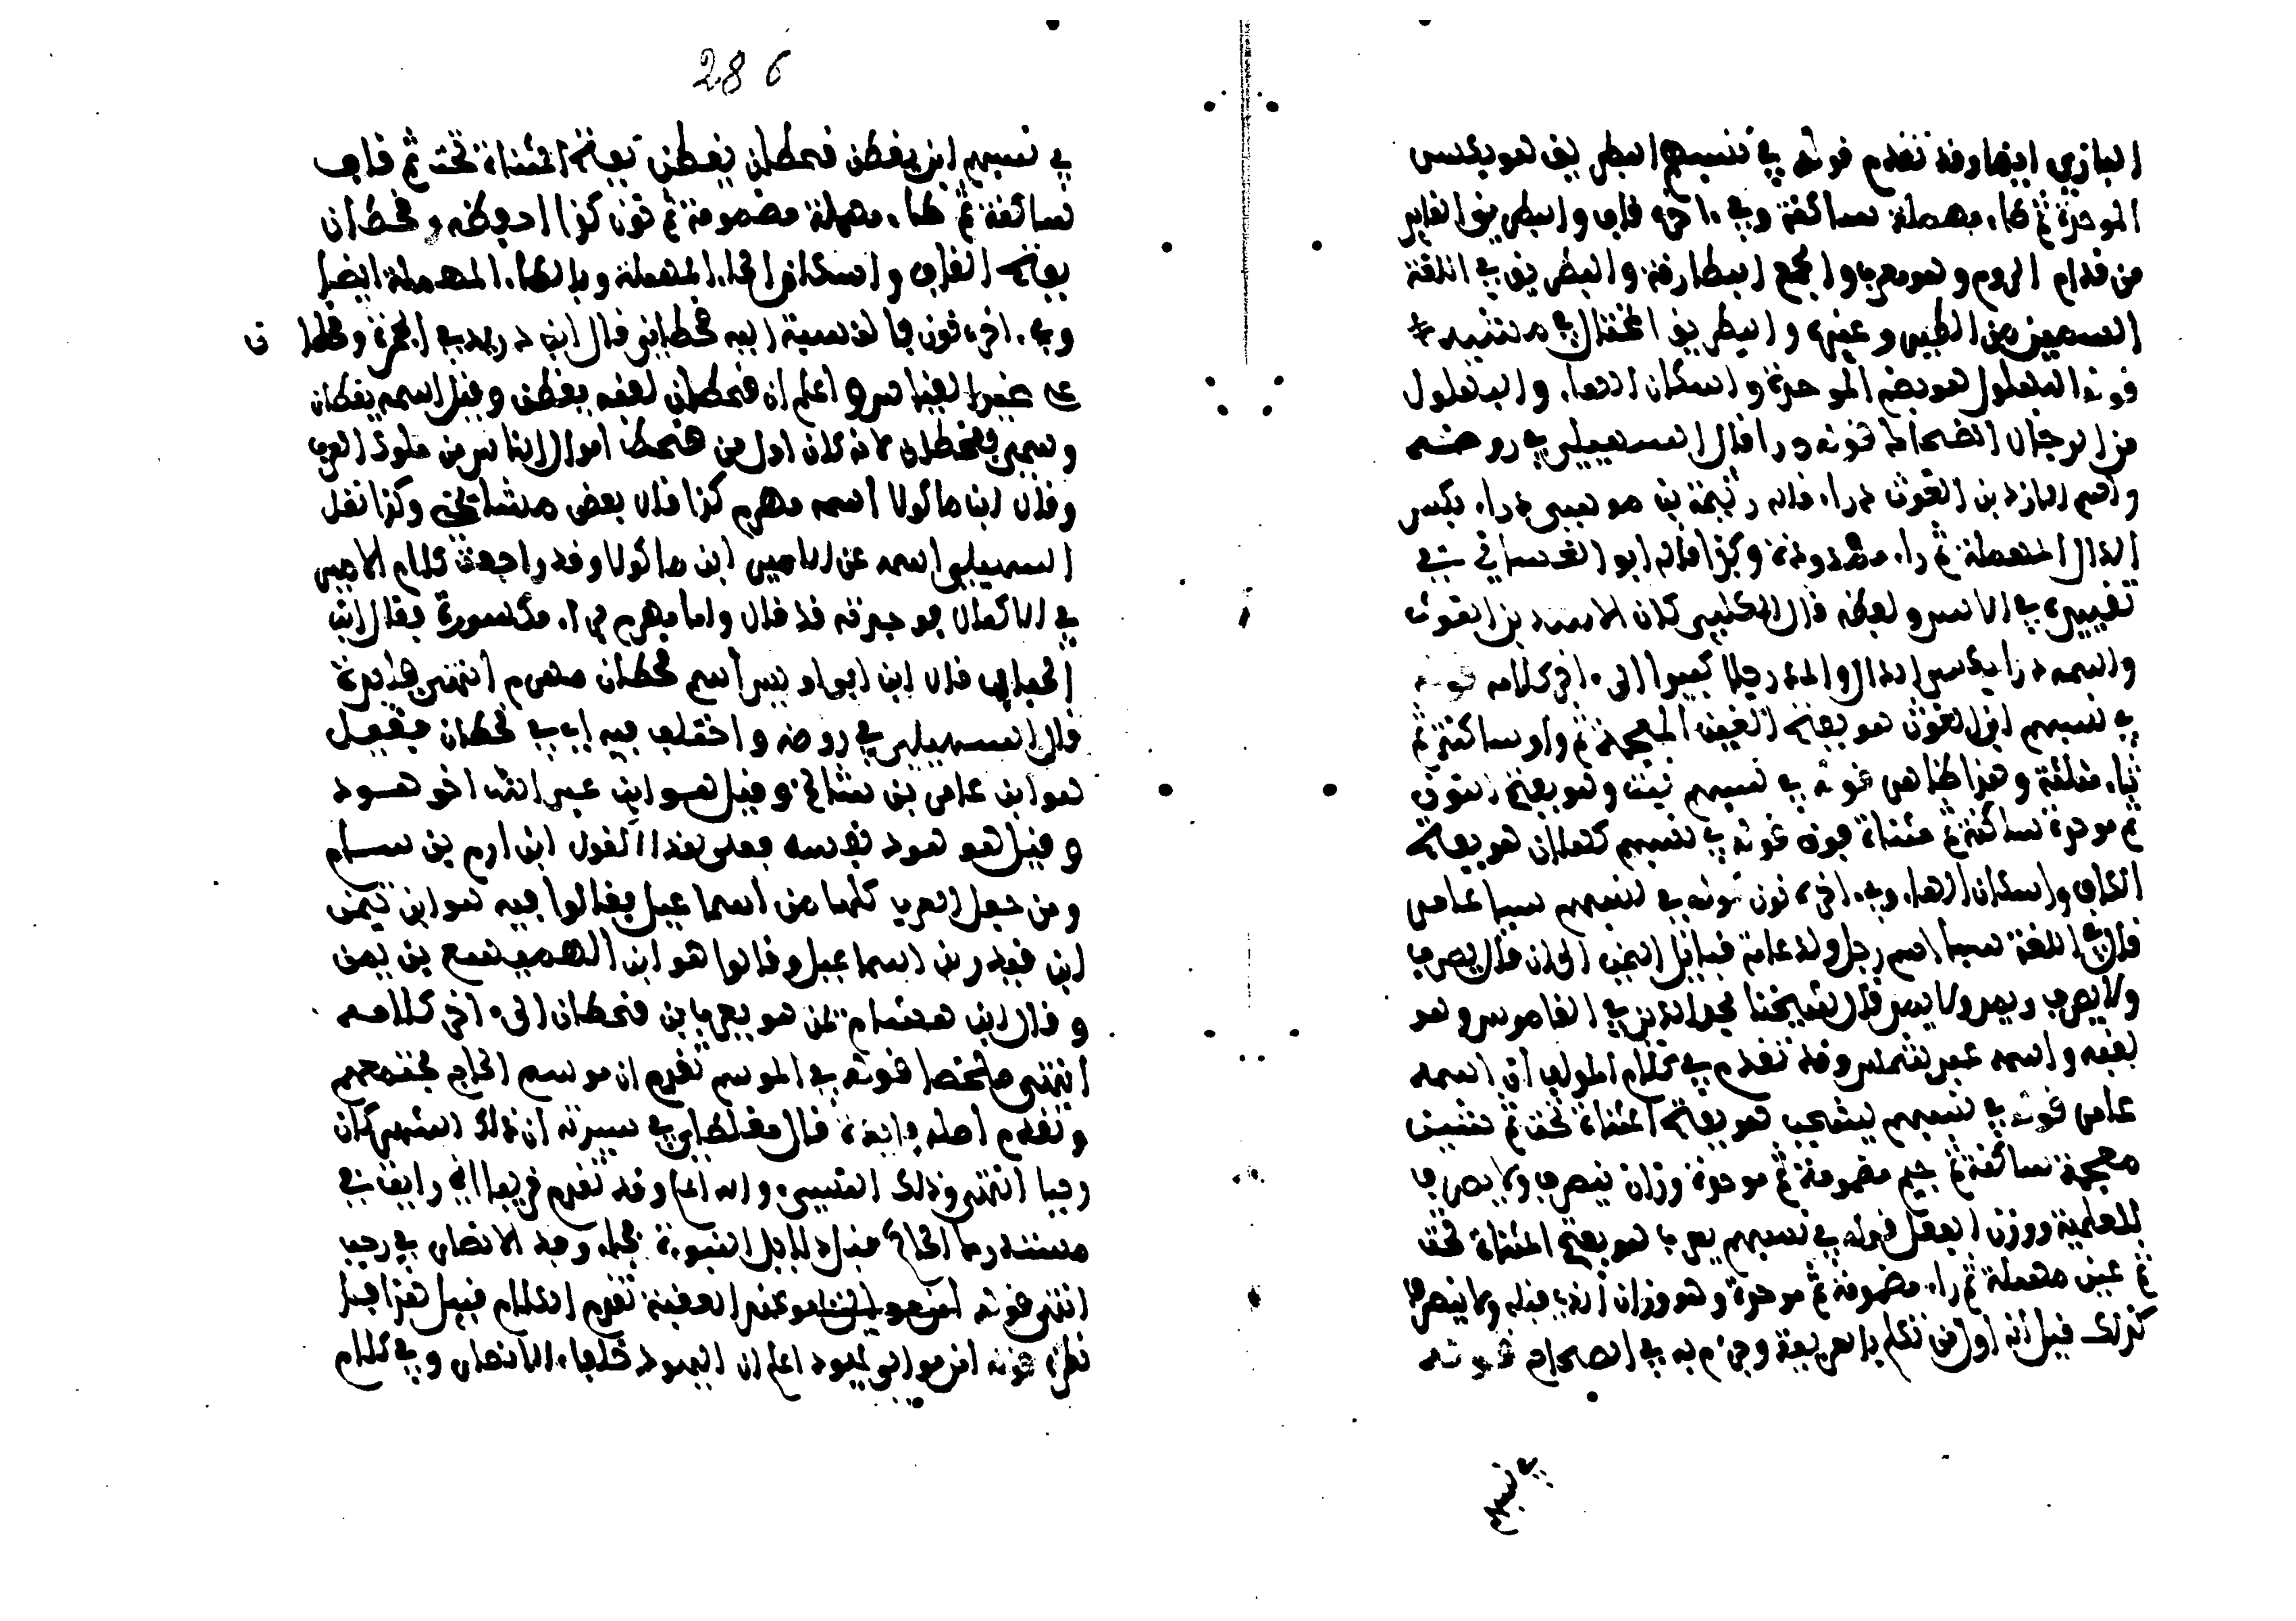 البازي ايضا وقد تقدم قوله في نسبهم البطريق هو بكسر
الموحدة ثم طاء مهملة ساكنة وفي ءاخره قاف والبطريق القايد
من قواد الروم وهو معرب والجمع البطارقة والبطريق في اللغة
السمين من الطير وغيره والبطريق المختال في مشيه
قوله البهلول هو بضم الموحدة واسكان الهاء والبهلول
من الرجال الضحاك قوله درا قال السهيلي في روضه
واسم الازد بن الغوث دراء قاله وثيمة بن موسى دراء بكسر
الدال المهملة ثم راء ممدودة وكذا قاله ابو الغساني في
تقييده في الانس ولفظه قال الكلبي كان الاسد بن الغوث
واسمه درا بكسر الدال والمد رجلا كبيرا الى ءاخر كلامه قوله
في نسبهم ابن الغوث هو بفتح الغين المعجمة ثم واو ساكنة ثم
ثاء مثلثة وهذا ظاهر قوله في نسبهم نبت وهو بفتح النون
ثم موحدة ساكنة ثم مثناة فوق قوله في نسبهم كهلان هو بفتح
الكاف واسكان الهاء وفي ءاخره نون قوله في نسبهم سبا عامر
قال في اللغة سبا اسم رجل ولد عامة قبايل اليمن الى ان قال يصرف
ولا يصرف ويمد ولا يمد قال شيخنا مجد الدين في القاموس وهو
لقبه واسمه عبد شمس وقد تقدم في كلام المولف ان اسمه
عامر قوله في نسبهم يشجب هو بفتح المثناة تحت ثم شين
معجمة ساكنة ثم جيم مضمومة ثم موحدة وزان ينصر ولا يصرف
للعلمية ووزن الفعل قوله في نسبهم يعرب هو بفتح المثناة تحت
ثم عين مهملة ثم راء مضمومة ثم موحدة وهو وزان الذي قبله ولا ينصرف
كذلك قيل انه اول من تكلم بالعربية وجزم به في الصحاح قوله
في نسبهم
286
في نسبهم ابن يقطن قحطان يقطن بفتح المثناة تحت ثم قاف
ساكنة ثم طاء مهملة مضمومة ثم نون كذا احفظه وقحطان
بفتح القاف واسكان الحاء المهملة وبالطاء المهملة ايضا
وفي ءاخره نون والنسبة اليه قحطاني قال ابن دريد في الجمهرة وقحطا ن
على غير القياس واعلم ان قحطان لقبه يقطن وقيل اسمه يقطان
وسمي قحطان لانه كان اول من قحط اموال الناس من ملوك العرب
وقال ابن ماكولا اسمه مهرم كذا قال بعض مشايخي وكذا نقل
السهيلي اسمه عن الامير ابن ماكولا وقد راجعت كلام الامير
في الاكمال فوجدته قد قال واما مهرم براء مكسورة فقال ابن
الحباب قال ابن ابي اويس اسم قحطان مهرم انتهى
قال السهيلي في روضه واختلف فيه اي في قحطان فقيل
هو ابن عامر بن شالخ وقيل هو ابن عبد الله اخو هود
وقيل هو هود نفسه فعلى هذا القول ابن ارم بن سام
ومن جعل العرب كلها من اسماعيل فقالوا فيه هو ابن تيمن
ابن قيدر بن اسماعيل وقالوا هو ابن الهميسع بن يمن
وقال ابن هشام يمن هو يعرب بن قحطان الى ءاخر كلامه
انتهى ملخصا قوله في الموسم تقدم ان موسم الحاج مجتمعهم
وتقدم اصله فايدة قال مغلطاي في سيرته ان ذلك الشهر كان
رجبا انتهى وذلك والله اعلم وقد تقدم قريبا اني رايت في
مستدرك الحاكم قبل دلايل النبوة وفد الانصار في رجب
انتهى قوله عند العقبة تقدم الكلام قبيل هذا
قوله امن موالي يهود اعلم ان اليهود حلفاء الانصار وفي كلام